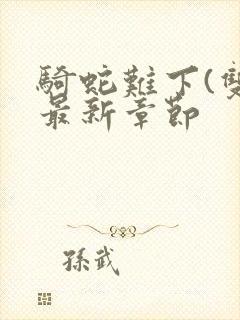 騎蛇難下(雙
最新章節
孫武